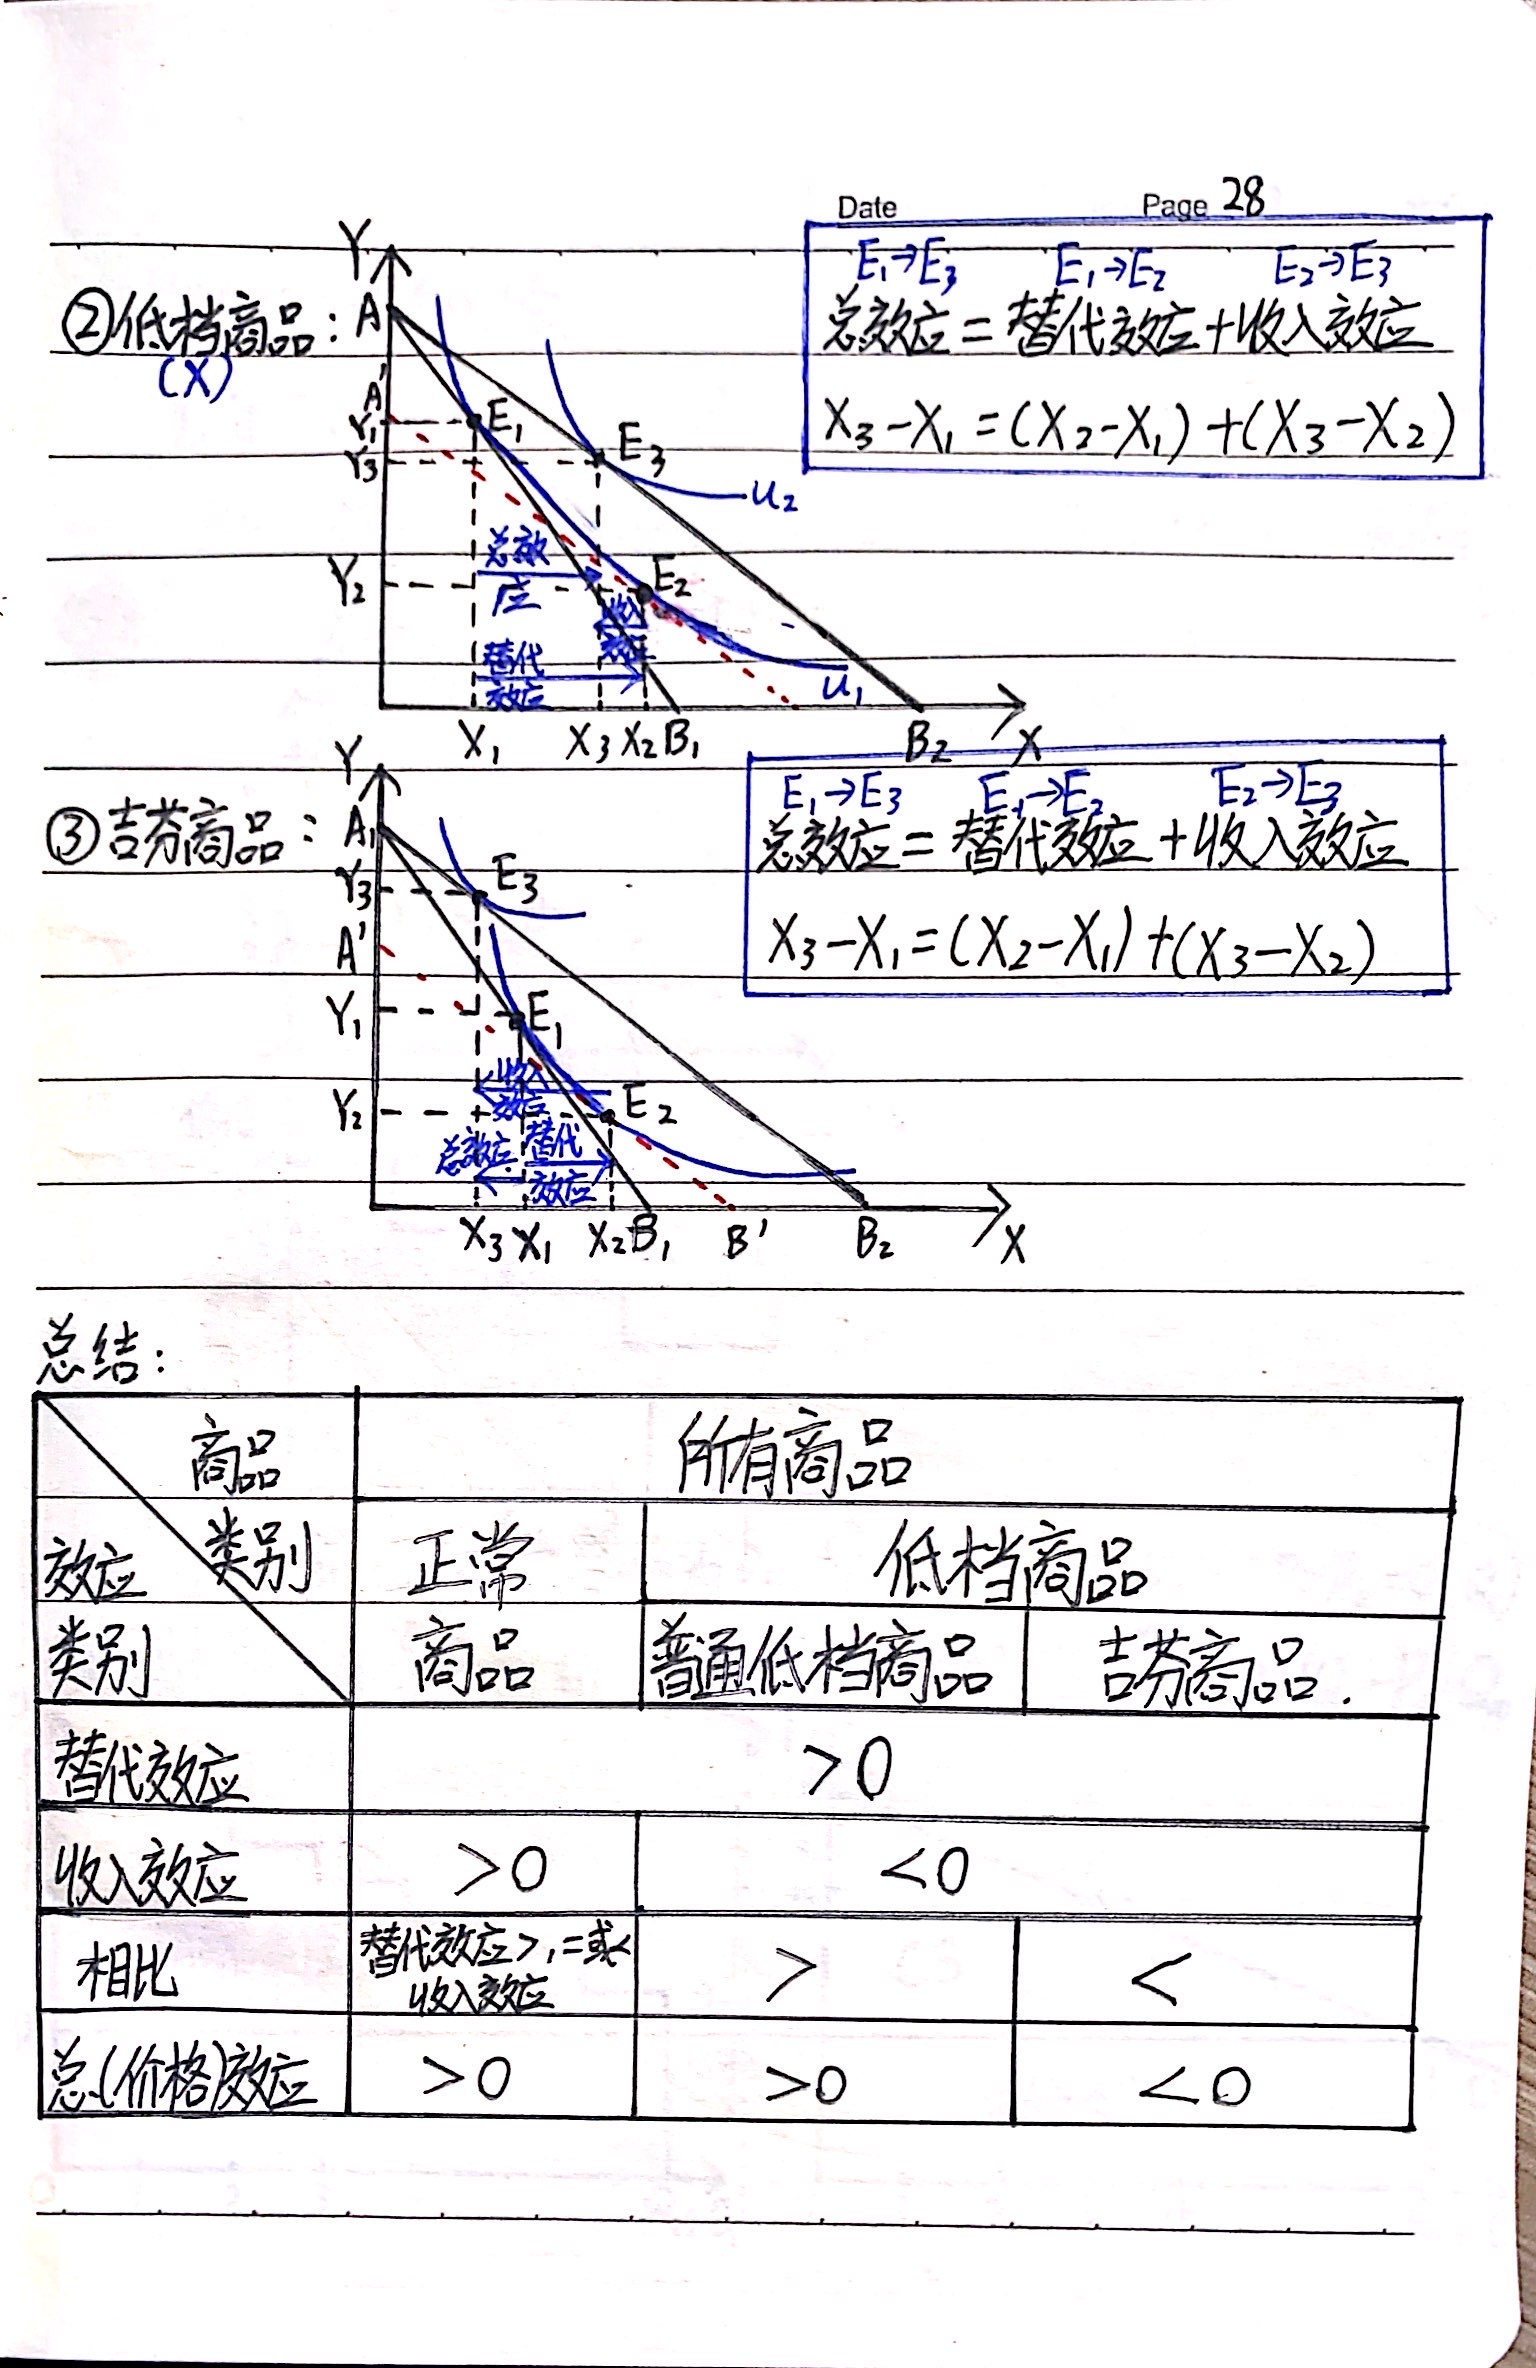 Date Page 28
②低档商品：
(X)
Y
A
A'
Y₁
Y₃
Y₂
E₁
E₃
u₂
E₂
u₁
总效
应
收入
效应
替代
效应
X₁ X₃ X₂ B₁ B₂ X
E₁→E₃ E₁→E₂ E₂→E₃
总效应=替代效应+收入效应
X₃-X₁=(X₂-X₁)+(X₃-X₂)
③吉芬商品：
Y
A₁
Y₃
A'
Y₁
Y₂
E₃
E₁
E₂
收入
效应
总效应
替代
效应
X₃ X₁ X₂ B₁ B' B₂ X
E₁→E₃ E₁→E₂ E₂→E₃
总效应=替代效应+收入效应
X₃-X₁=(X₂-X₁)+(X₃-X₂)
总结：
商品
类别
效应
类别
所有商品
正常
商品
低档商品
普通低档商品 吉芬商品.
替代效应 >0
收入效应 >0 <0
相比 替代效应>,=或<
收入效应 > <
总(价格)效应 >0 >0 <0